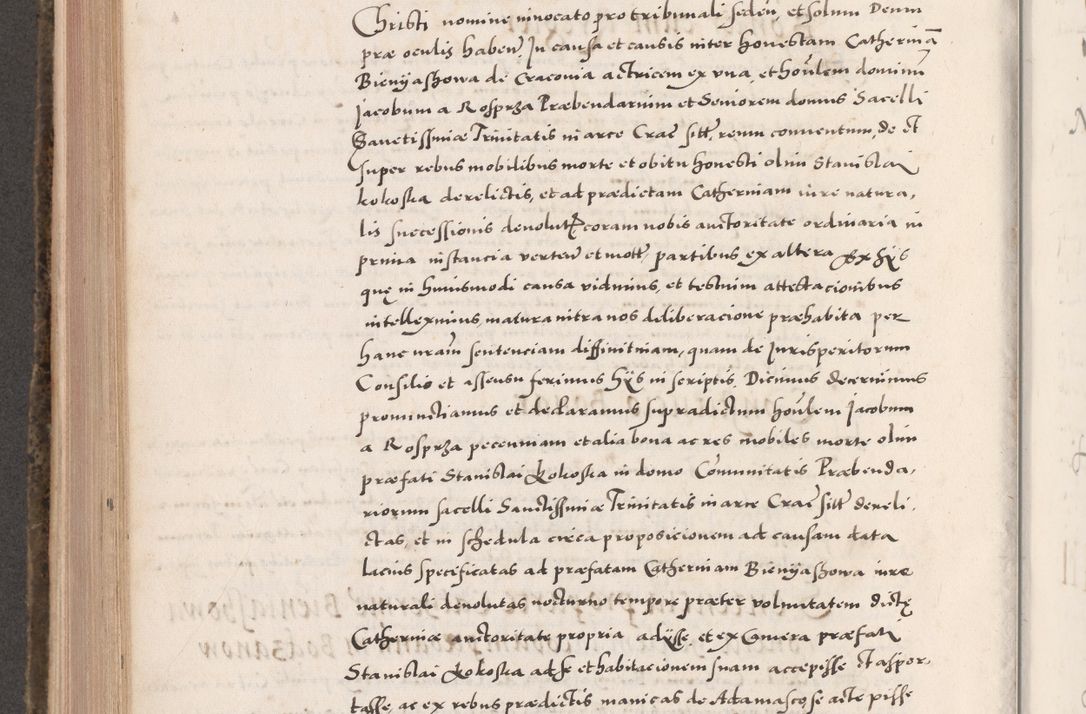 Christi nomine invocato pro tribunali seden̄, et solum Deum
præ oculis haben̄. In causa et causis inter honestam Catherinā
Bieniyaszowa de Cracovia actricem ex una, et hon̄lem dominū
Jacobum a Rosprza Præbendarium et Seniorem domus Sacelli
Sanctissimæ Trinitatis in arce Crac̄ sitt̄ reum conventum, de et
super rebus mobilibus morte et obitu honesti olim Stanislai
kokoska derelictis, et ad prædictam Catherinam iure natura,
lis successionis devolut̄ coram nobis auctoritate ordinaria in
prima instancia verten̄ et mott̄, partibus ex altera Ex hys
quę in huiusmodi causa vidimus, et testium attestacionibus
intelleximus, matura intra nos deliberacione præhabita per
hanc nram̄ sentenciam diffinitivam, quam de Jurisperitorum
Consilio et assensu ferimus hys in scriptis. Dicimus decernimus
pronunctiamus et declaramus supradictum hon̄lem Jacobum
a Rosprza pecuniam et alia bona ac res mobiles morte olim
præfati Stanislai kokoska in domo Comunitatis Præbenda,
riorum sacelli Sanctissimæ Trinitatis in arce Crac̄ sitt̄ dereli,
ctas, et in schedula circa proposicionem ad causam data
lacius specificatas ad præfatam Catherinam Bieniyaszowa iure
naturali devolutas nocturno tempore præter voluntatem dictę
Catherinæ auctoritate propria adysse, et ex Camera præfati
Stanislai kokoska ad se et habitacionem suam accepisse et aspor,
tasse, ac ex rebus prædictis manicas de Adamasco se accepisse